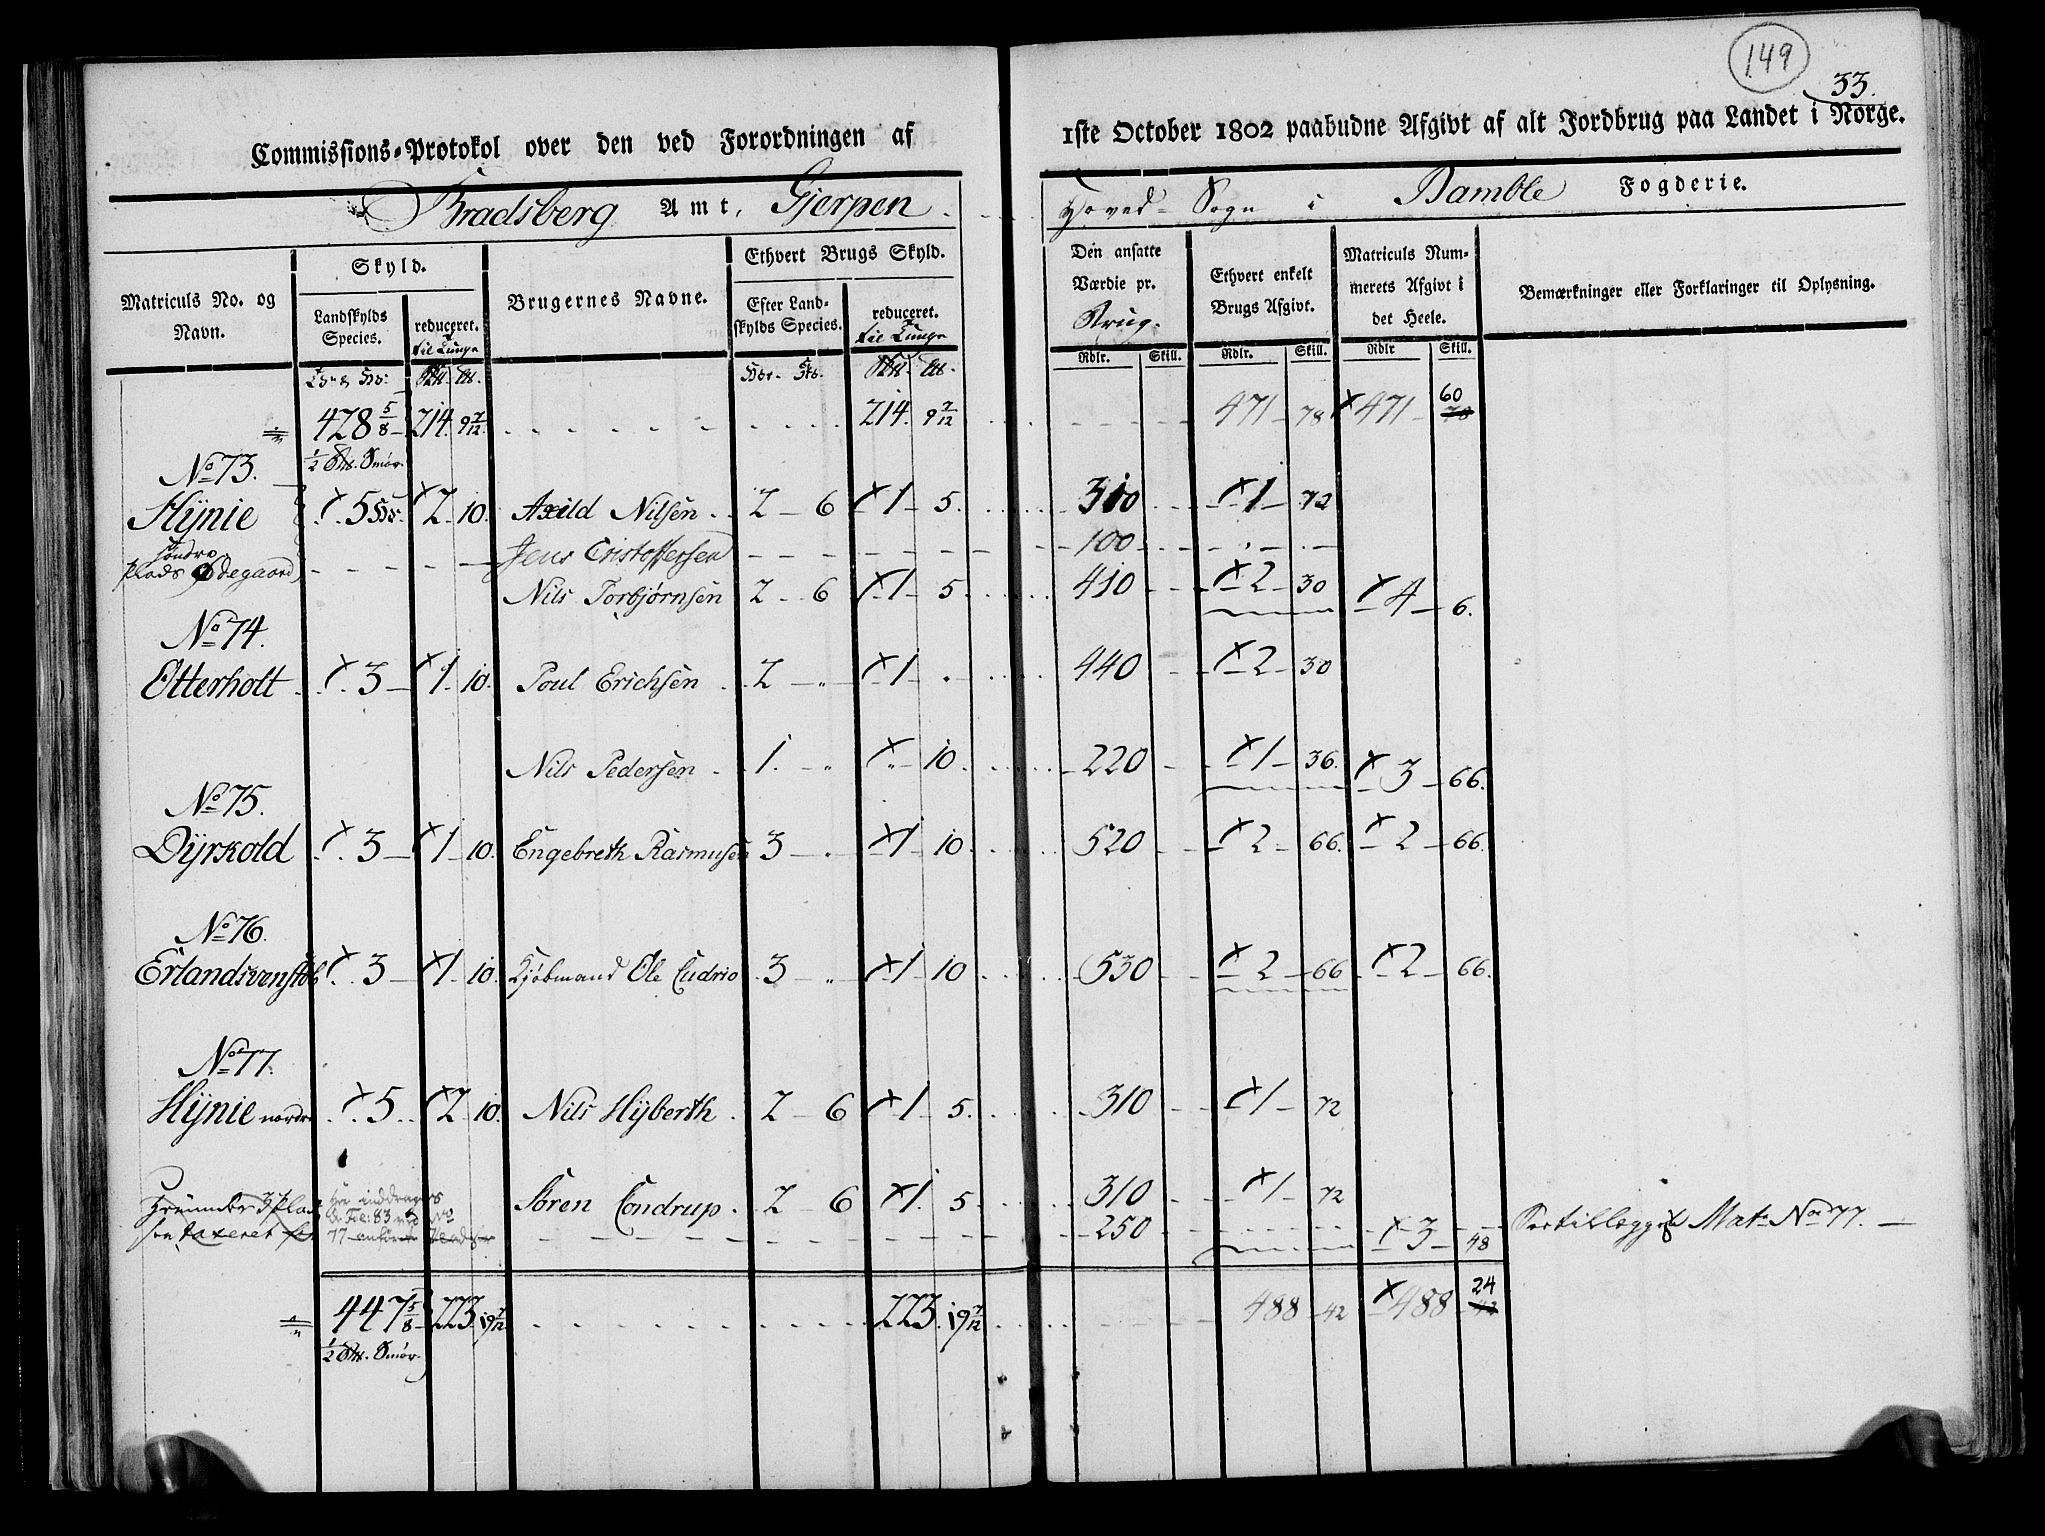 149
33.
Commissions-Protokol over den ved Forordningen af 1ste October 1802 paabudne Afgivt af alt Jordbrug paa Landet i Norge.
Bradsberg Amt, Gjerpen Hoved-Sogn i Bamble Fogderie.
Matriculs No. og Navn. Skyld. Brugernes Navne. Ethvert Brugs Skyld. Den ansatte Værdie pr. Brug. Ethvert enkelt Brugs Afgivt. Matriculs Nummerets Afgivt i det Heele. Bemærkninger eller Forklaringer til Oplysning.
Landskylds Species. reduceret. til Tunge Efter Landskylds Species. reduceret. til Tunge
Rdlr. Skill. Rdlr. Skill. Rdlr Skill.
428 5/8 214. 9 7/12 214. 9 7/12 471 - 78 x 471 - 60 78
1/2 Smør.
No 73.
Hÿnie x 5 x 2 10. Axild Nilsen 2 - 6 x 1 - 5. 310 x 1 - 72
søndre
Plads Ødegaard Jens Cristoffersen 100
Nils Torbjørnsen 2 - 6 x 1 - 5 410 x 2 - 30 x 4 - 6.
No 74.
Otterholt x 3 x 1 10. Poul Erichsen 2 - " x 1 - . 440 x 2 - 30
Nils Pedersen 1. - " x " 10. 220 x 1 - 36. x 3 - 66.
No 75.
Dÿrkold x 3 x 1 10. Engebreth Rasmusen 3 - " x 1 10. 520 x 2 - 66. x 2 - 66.
No 76.
Erlandsvenstøb x 3 x 1 10. Kjøbmand Ole Cudrio 3 - " x 1 10 530 x 2 - 66 x 2 - 66.
No 77.
Hÿnie nordre x 5 x 2 10. Nils Hÿberth 2 - 6 x 1 - 5. 310 x 1 - 72
Søren Condrup 2 - 6 x 1. 5 310 x 1 - 72
her inddrages
77
250 x 3 - 48 Mat. No 77.
447 5/8 223. 19 7/12 223. 19 7/12 488 - 42 x 488 - 24 42
1/2 Smør.